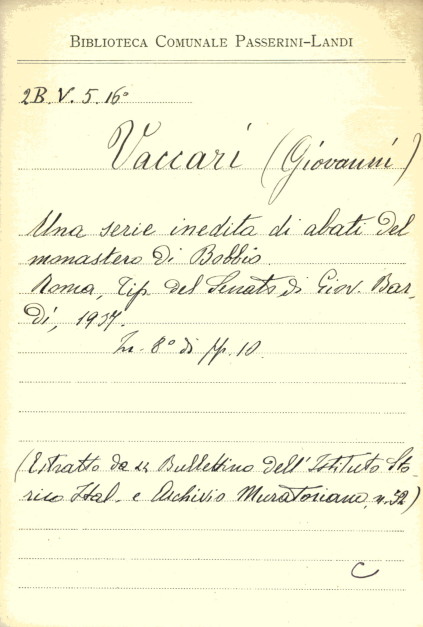 BIBLIOTECA COMUNALE PASSERINI-LANDI
2B.V.5.16°
Vaccari (Giovanni)
Una serie inedita di abati del
monastero di Bobbio.
Roma, Tip. del Senato di Giov. Bar-
di, 1937.
In-8° di pp. 10.
(Estratto da "Bullettino dell'Istituto Sto-
rico Ital. e Archivio Muratoriano, n. 52)
C